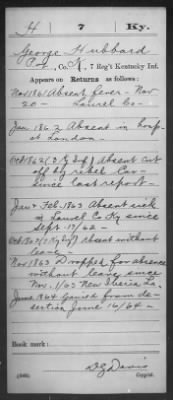 H 7 Ky.
George Hubbard
Pvt., Co. K, 7 Reg't Kentucky Inf.
Appears on Returns as follows:
Nov 1861 Absent fever - Nov
20 - Laurel Co -
Jan 1862 Absent in hosp
at London -
Oct 1862 ( Ky Inf) Absent cut
off by rebel Cav
since last report -
Jan & Feb. 1863 Absent sick
at Laurel Co Ky since
Sept 17/62 -
Oct 1863 ( Ky Inf) Absent without
leave -
Nov 1863 Dropped for absence
without leave since
Nov. 1/63 New Iberia La.
June 1864 Gained from de-
sertion June 16/64 -
Book mark:
D G Davis
(546) Copyist.